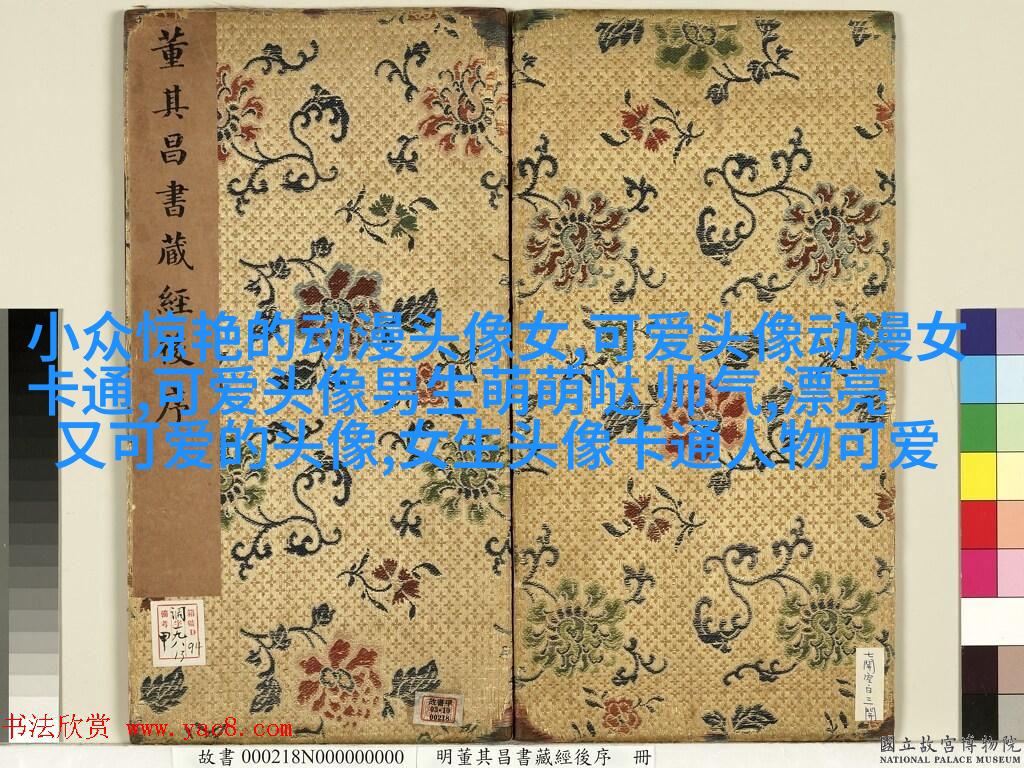 董其昌書藏經後序
小众惊艳的动漫头像女,可爱头像动漫女
卡通,可爱头像男生萌萌哒 帅气,漂亮
又可爱的头像,女生头像卡通人物可爱
箱號D
備考
調一九八
甲
13
94
故書甲
03•10
00218
七開空白三開
书法欣赏 www.yac8.com
故書 000218N000000000
明董其昌書藏經後序 冊
國立故宮博物院
NATIONAL PALACE MUSEUM